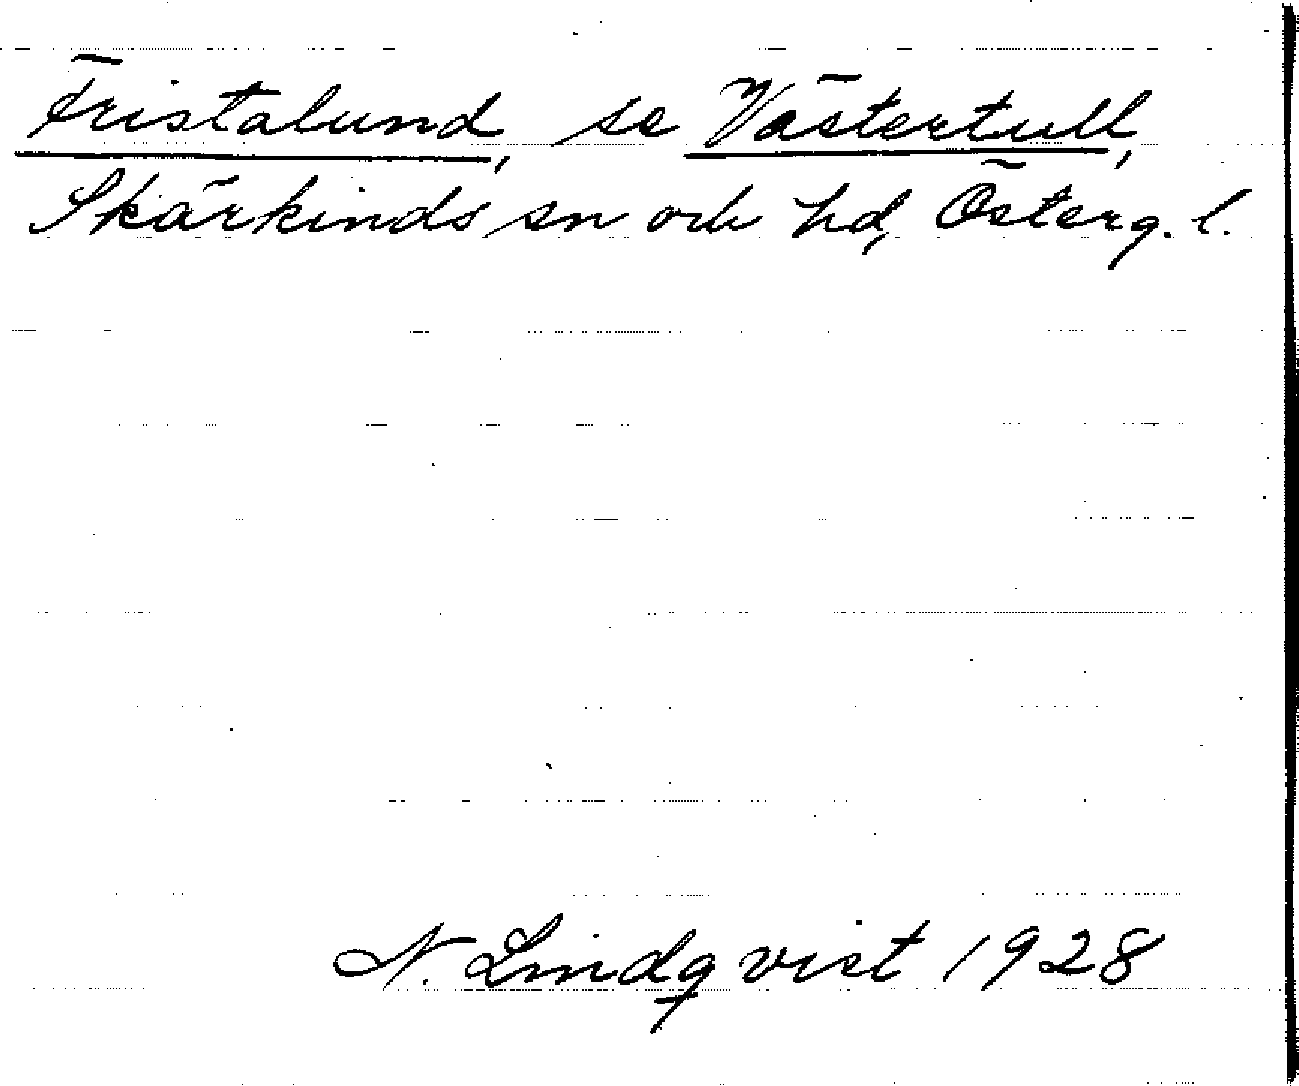 Fristalund, se Västertull,
Skärkinds sn och hd, Österg. l.
N. Lindqvist 1928